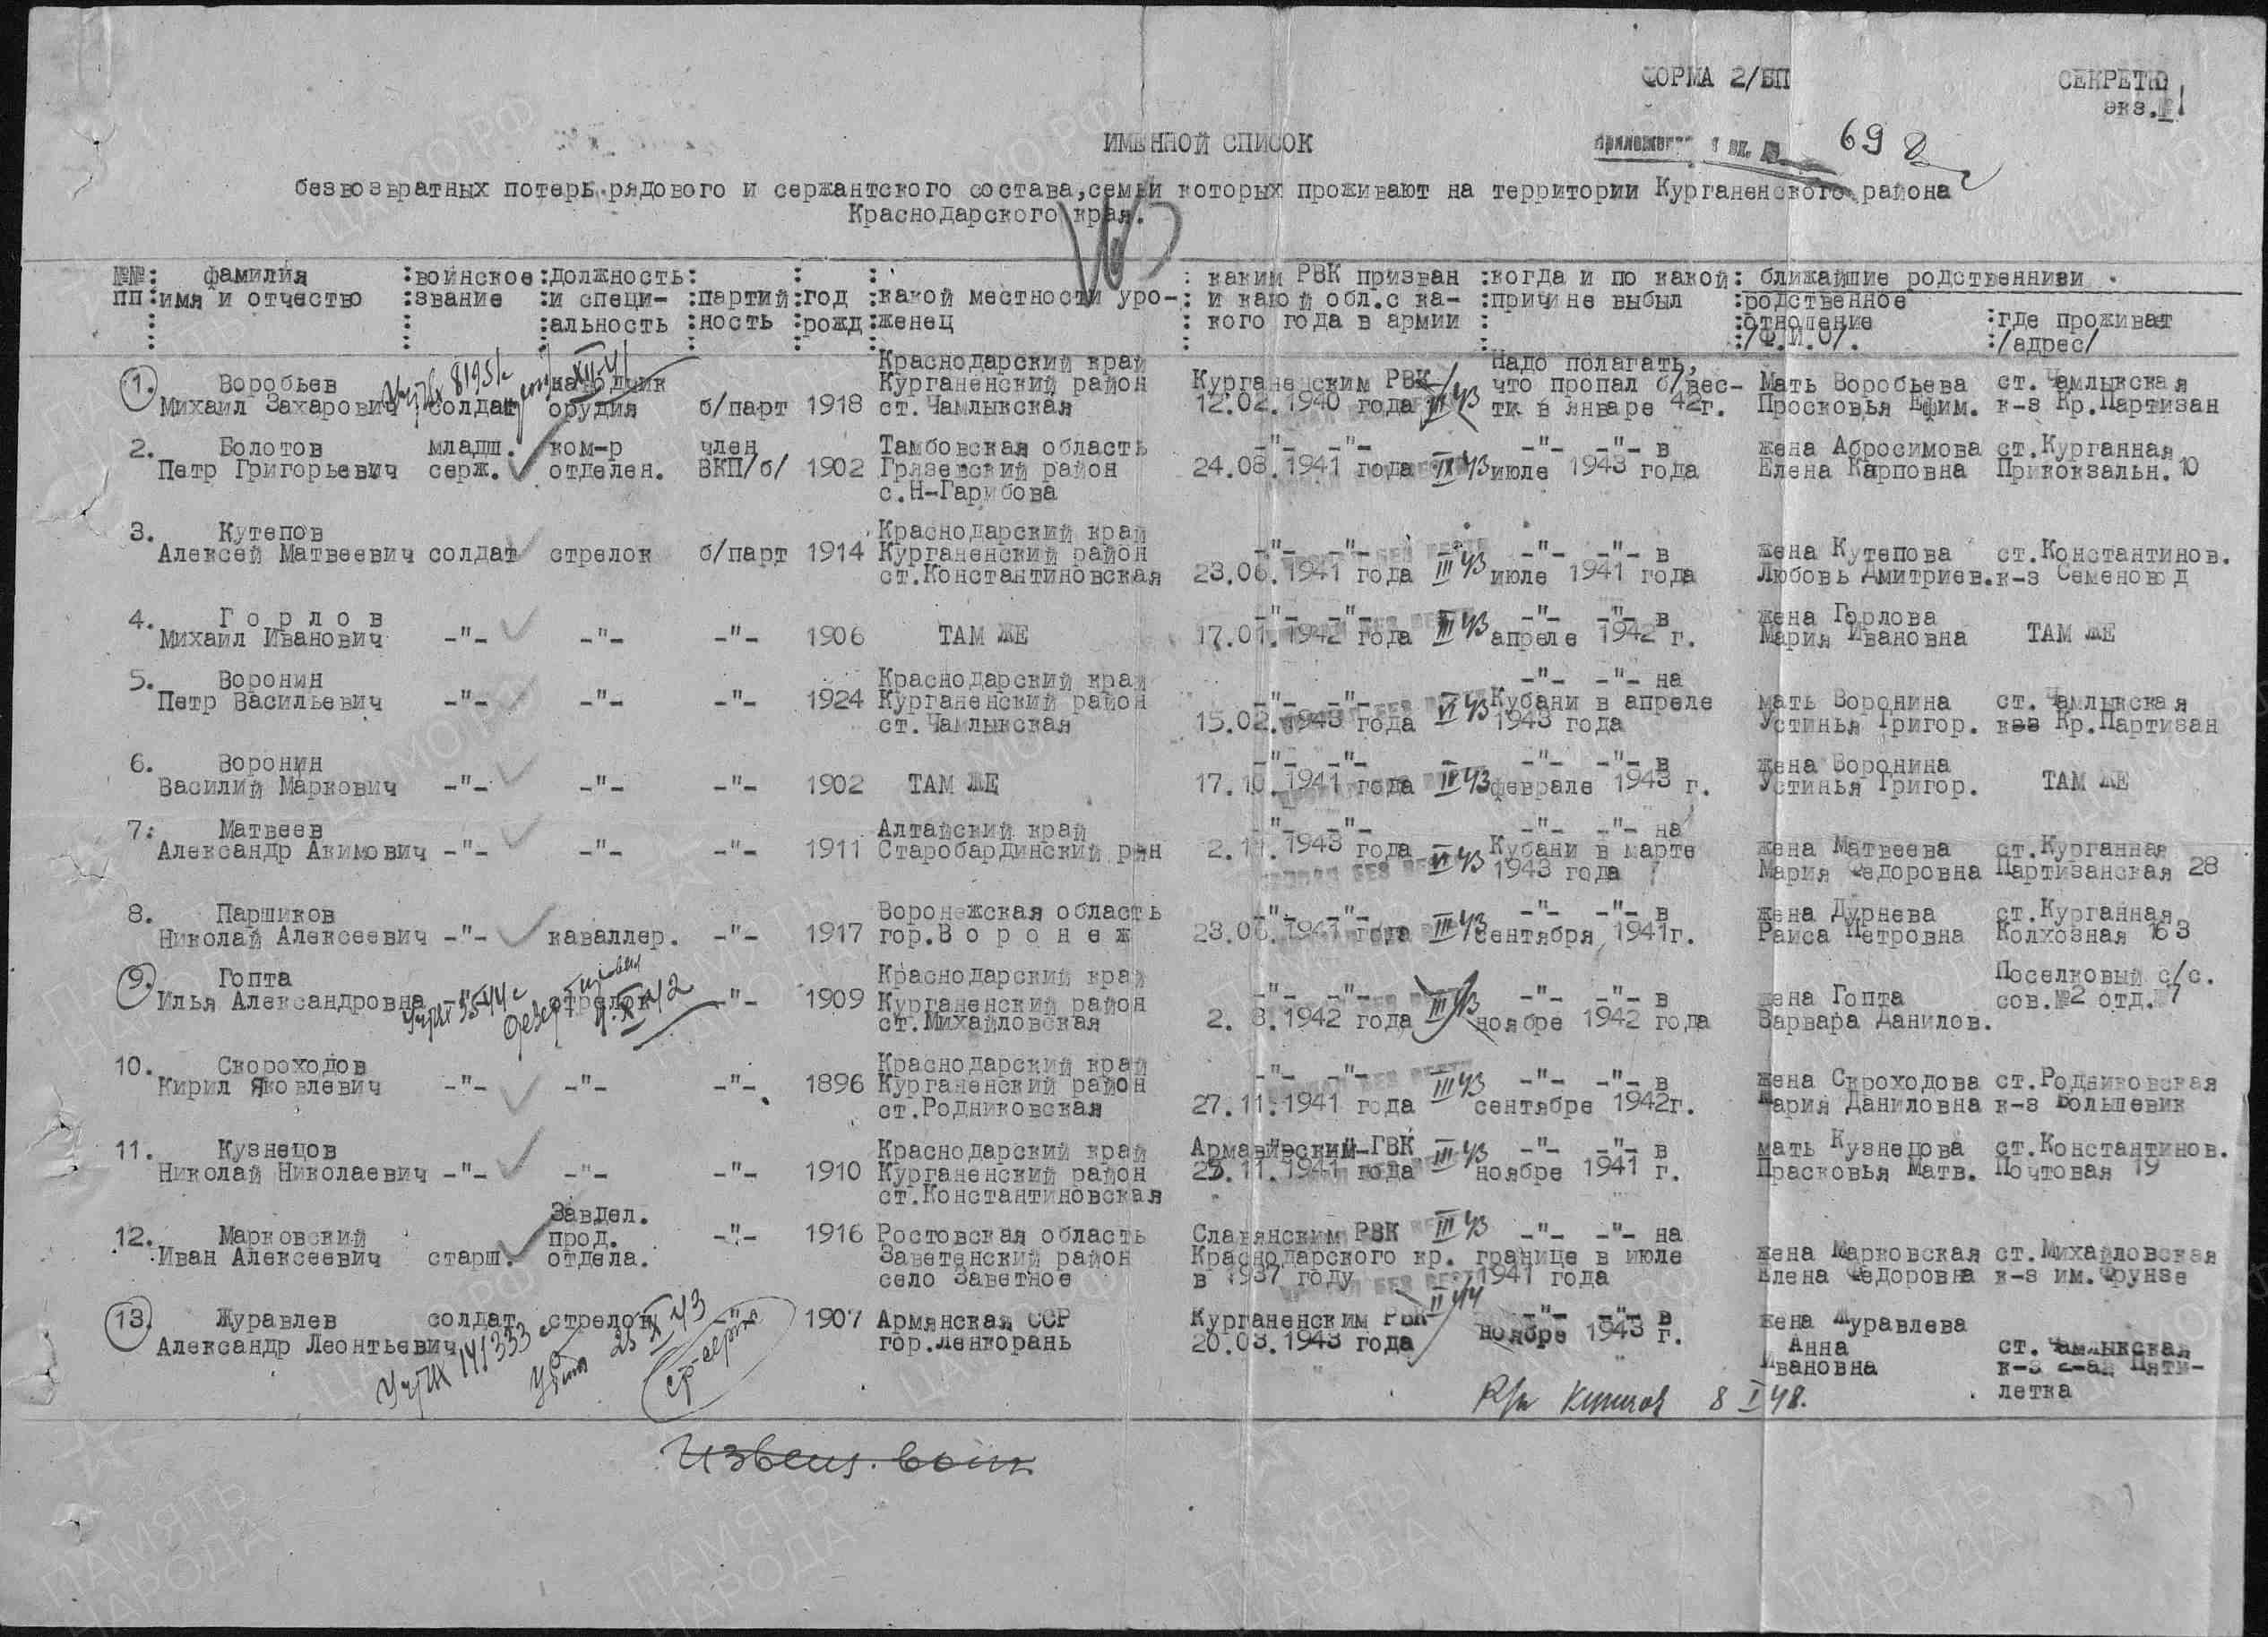 ФОРМА 2/БП
СЕКРЕТНО
экз.№ 1
ИМЕННОЙ СПИСОК
698
безвозвратных потерь рядового и сержантского состава,семьи которых проживают на территории Курганенского района
Краснодарского края.
№№: фамилия :воинское :должность: : : : каким РВК призван :когда и по какой: ближайшие родственники
ПП :имя и отчество :звание :и специ- :партий:год :какой местности уро-: и какой обл.с ка- :причине выбыл :родственное
:альность :ность :рожд:женец : кого года в армии : :отношение :где проживает
:/Ф.И.О/. :/адрес/
Краснодарский край Надо полагать,
1. Воробьев наводчик Курганенский район Курганенским РВК что пропал б/вес- Мать Воробьева ст.Чамлыкская
Михаил Захарович солдат орудия б/парт 1918 ст.Чамлыкская 12.02.1940 года III 43 ти в январе 42г. Просковья Ефим. к-з Кр.Партизан
2. Болотов младш. ком-р член Тамбовская область -"- -"- -"- -"- в жена Абросимова ст.Курганная
Петр Григорьевич серж. отделен. ВКП/б/ 1902 Грязевский район 24.08.1941 года IX 43 июле 1943 года Елена Карповна Привокзальн. 10
с.Н-Гарибова
3. Кутепов Краснодарский край
Алексей Матвеевич солдат стрелок б/парт 1914 Курганенский район -"- -"- III 43 -"- -"- в жена Кутепова ст.Константинов.
ст.Константиновская 23.06.1941 года июле 1941 года Любовь Дмитриев.к-з Семеновод
4. Горлов -"- -"- -"- -"- в жена Горлова
Михаил Иванович -"- -"- -"- 1906 ТАМ ЖЕ 17.01.1942 года III 43 апреле 1942 г. Мария Ивановна ТАМ ЖЕ
5. Воронин Краснодарский край -"- -"- на
Петр Васильевич -"- -"- -"- 1924 Курганенский район -"- -"- VI 43 Кубани в апреле мать Воронина ст. Чамлыкская
ст. Чамлыкская 15.02.1943 года 1943 года Устинья Григор. Кр.Партизан
6. Воронин -"- -"- -"- -"- в жена Воронина
Василий Маркович -"- -"- -"- 1902 ТАМ ЖЕ 17.10.1941 года IV 43 феврале 1943 г. Устинья Григор. ТАМ ЖЕ
7. Матвеев Алтайский край -"- -"- -"- -"- на
Александр Акимович -"- -"- -"- 1911 Старобардинский рян 2.11.1943 года VI 43 Кубани в марте жена Матвеева ст.Курганная
1943 года Мария Федоровна Партизанская 28
8. Паршиков Воронежская область -"- -"- -"- -"- в жена Дурнева ст.Курганная
Николай Алексеевич -"- каваллер. -"- 1917 гор.Воронеж 23.06.1941 года III 43 сентября 1941г. Раиса Петровна Колхозная 163
9. Гопта Краснодарский край Поселковый с/с.
Илья Александровна -"- стрелок -"- 1909 Курганенский район -"- -"- III 43 -"- -"- в жена Гопта сов.№2 отд.7
ст.Михайловская 2. 8.1942 года ноябре 1942 года Варвара Данилов.
10. Скороходов Краснодарский край
Кирил Яковлевич -"- -"- -"- 1896 Курганенский район -"- -"- III 43 -"- -"- в жена Скроходова ст.Родниковская
ст.Родниковская 27.11.1941 года сентябре 1942г. Мария Даниловна к-з Большевик
11. Кузнецов Краснодарский край Армавирским ГВК III 43 -"- -"- в мать Кузнецова ст.Константинов.
Николай Николаевич -"- -"- -"- 1910 Курганенский район 25.11.1941 года ноябре 1941 г. Прасковья Матв. Почтовая 19
ст.Константиновская
Завдел.
12. Марковский прод. -"- 1916 Ростовская область Славянским РВК III 43 -"- -"- на
Иван Алексеевич старш. отдела. Заветенский район Краснодарского кр. границе в июле жена Марковская ст.Михайловская
село Заветное в 1937 году 1941 года Елена Федоровна к-з им.Фрунзе
13. Журавлев солдат стрелок 1907 Армянская ССР Курганенским РВК II 44 -"- -"- в жена Журавлева
Александр Леонтьевич гор.Ленкорань 20.03.1943 года ноябре 1943 г. Анна ст. Чамлыкская
Ивановна к-з 2-ая Пяти-
летка
141333 убит 25 XI 43
8 I 48.